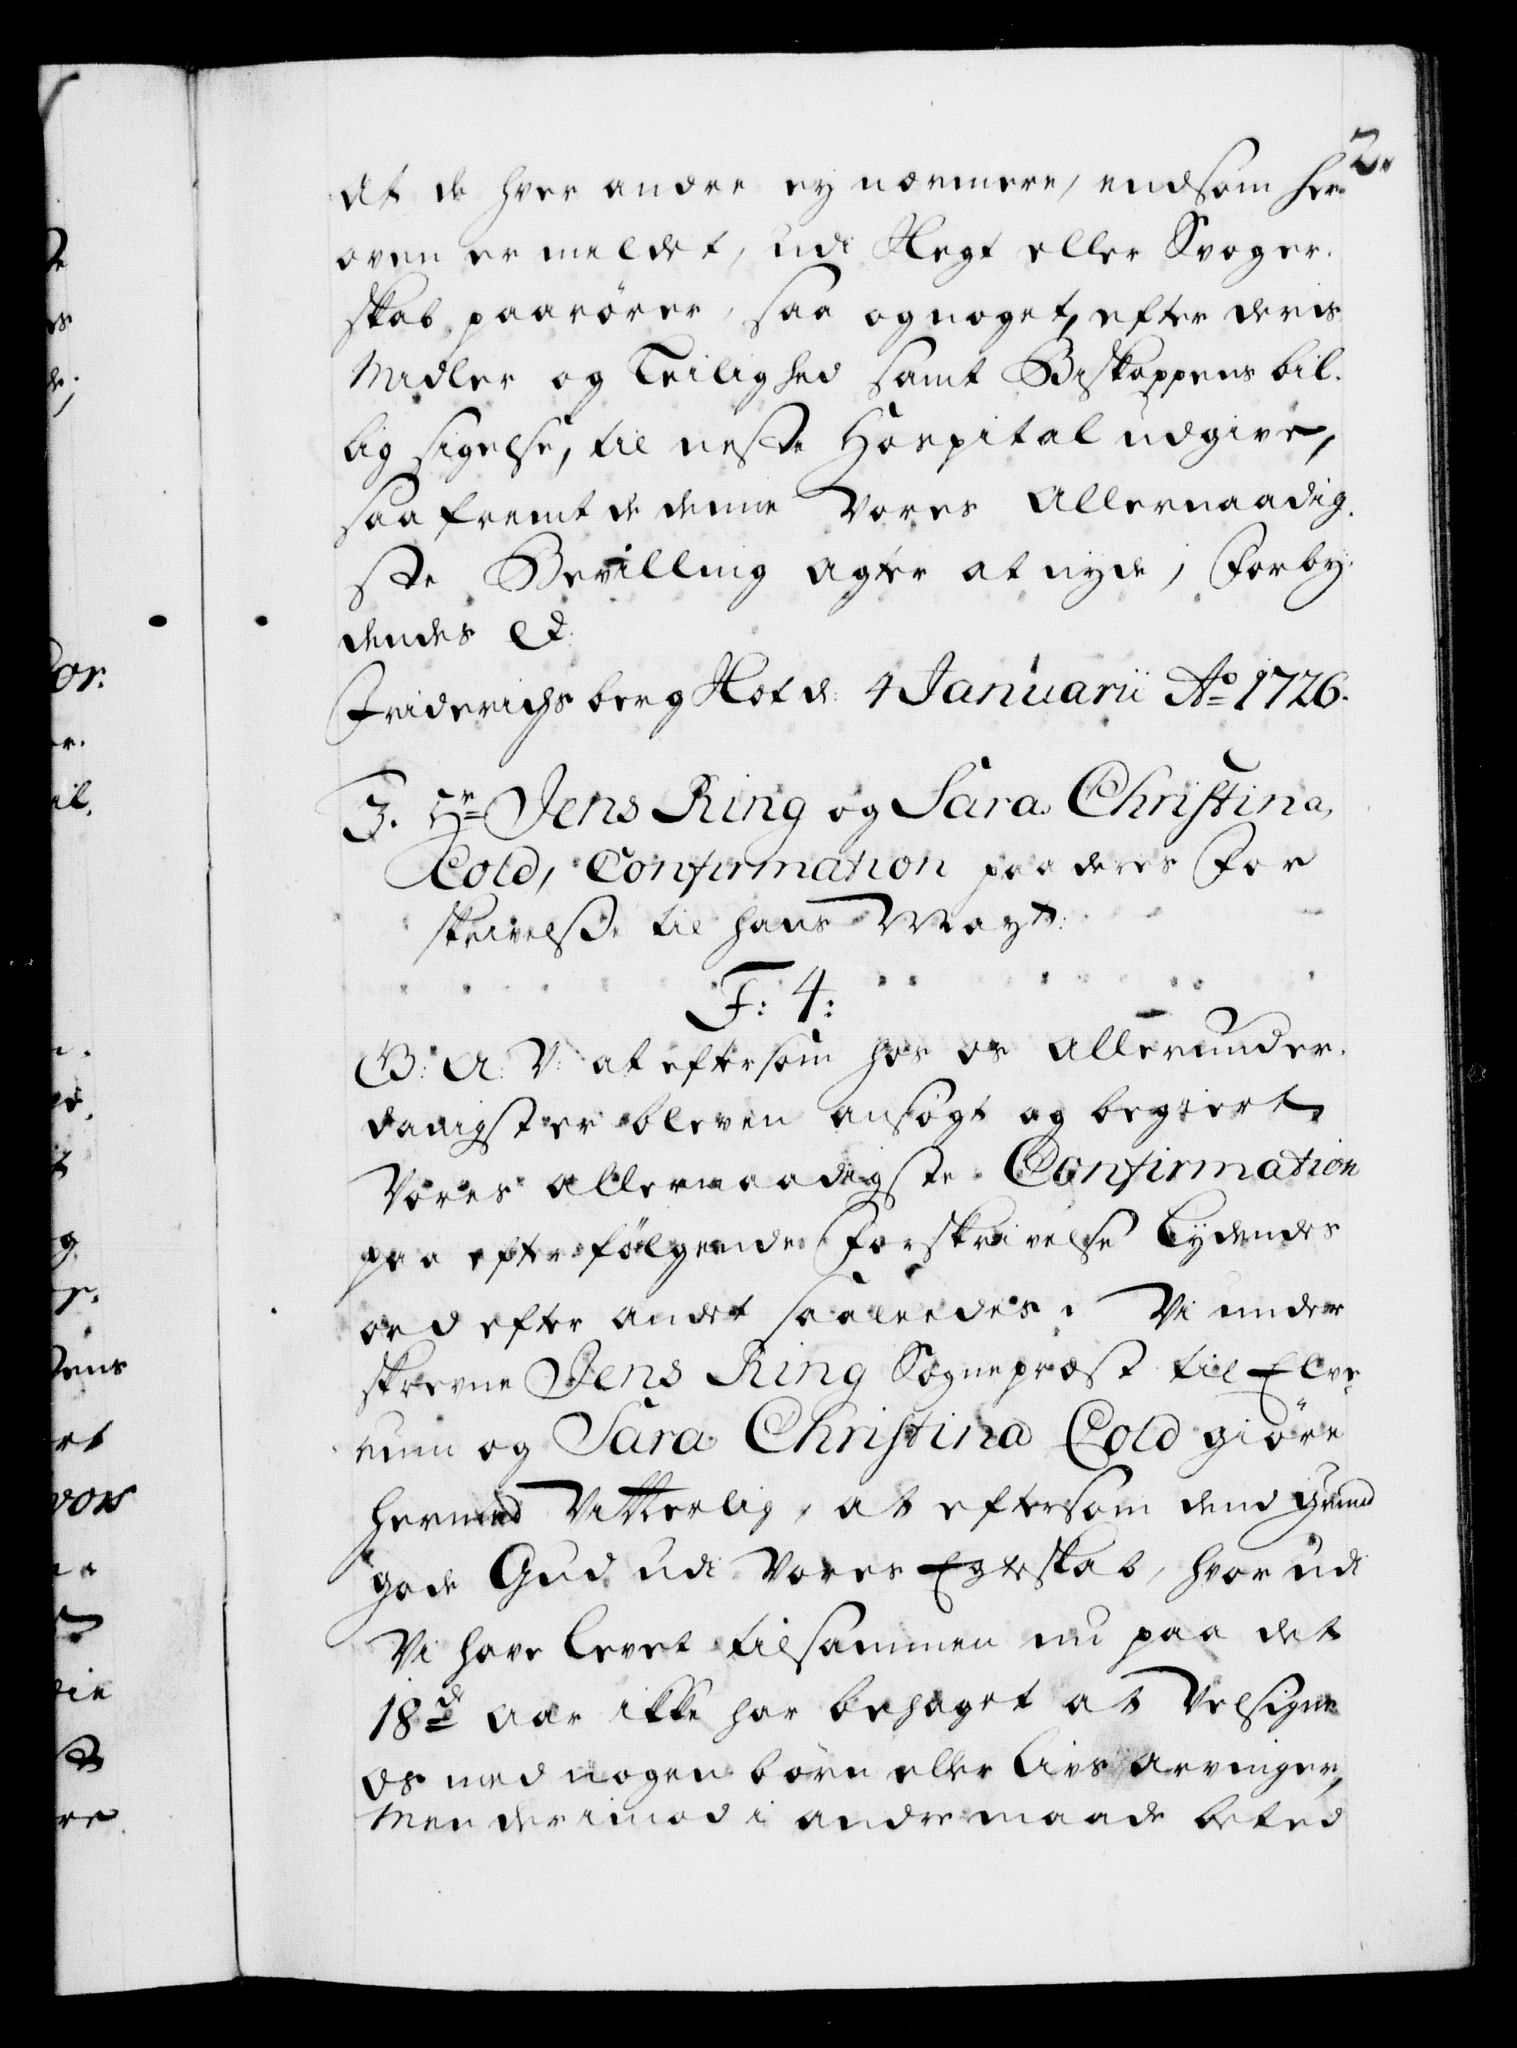 2.
dt de hver andre ey nærmere, end som her
oven er meldet, udi Slegt eller Svoger.
skab paarörer, saa og noget, efter deris
Midler og Leilighed samt Biskoppens bil.
lig sigelse, til neste Hospital udgive,
saafremt de denne Vores Allernaadig.
ste Bevilling agter at nyde, Forby.
dendes &:
Friderichsberg Slot d: 4 Januarii Ao 1726.
3. Hr Jens Ring og Sara Christina
Cold, Confirmation paa deres For
skrivelsße til hans Mayt:
F: 4:
G: A: V: at eftersom hos os allerunder.
danigst er bleven ansögt og begiert
Vores allernaadigste Confirmation
paa efterfölgende Forskrivelse Lydendes
ord efter andet saaleedes: Vi under
skrevne Jens Ring Sognepræst til Elve
rum og Sara Christina Cold giöre
hermed Vitterlig, at eftersom dend grund
gode Gud udi Vores Egteskab, hvor udi
Vi have levet tilsammen nu paa det
18d Aar ikke har behaget at Velsigne
os med nogen börn eller Livs arvinger,
Men derimod i andre maade beted